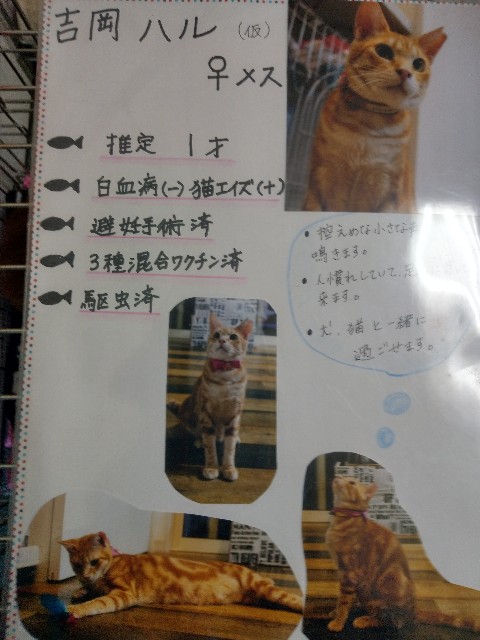 吉岡 ハル (仮)
♀メス
推定 1才
白血病(-) 猫エイズ(+)
避妊手術済
3種混合ワクチン済
駆虫済
・控えめな小さな
鳴きます。
・人慣れしていて、足
来ます。
・犬、猫と一緒に
過ごせます。